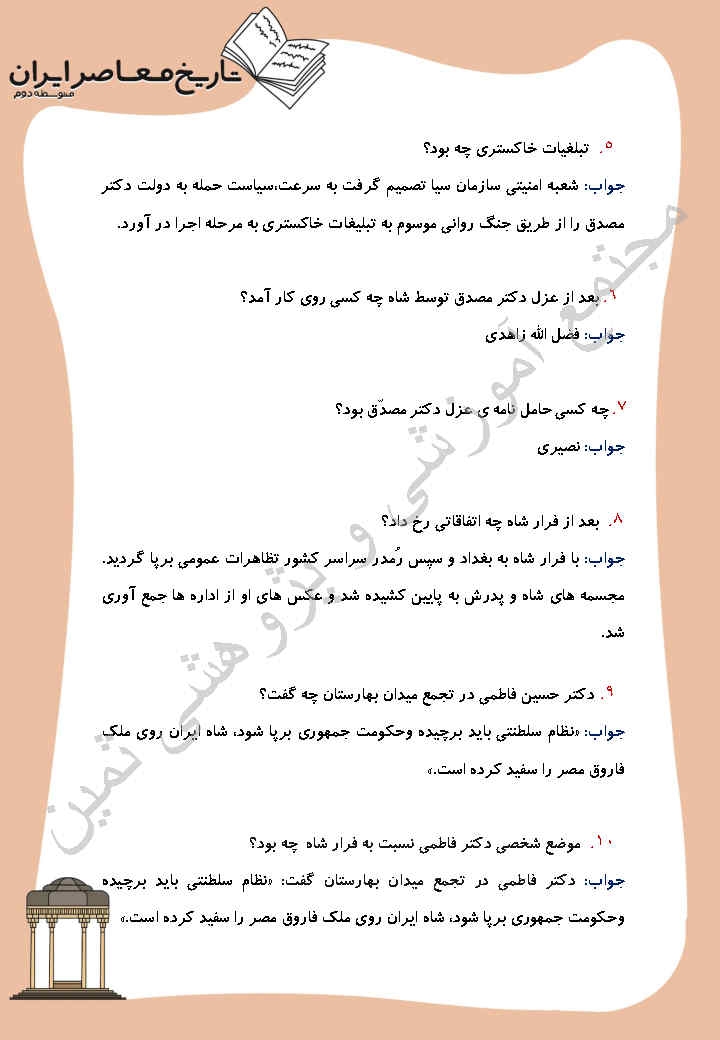 تاریخ معاصر ایران
متوسطه دوم
۵. تبلغیات خاکستری چه بود؟
جواب: شعبه امنیتی سازمان سیا تصمیم گرفت به سرعت،سیاست حمله به دولت دکتر
مصدق را از طریق جنگ روانی موسوم به تبلیغات خاکستری به مرحله اجرا در آورد.
۶. بعد از عزل دکتر مصدق توسط شاه چه کسی روی کار آمد؟
جواب: فضل الله زاهدی
۷. چه کسی حامل نامه ی عزل دکتر مصدّق بود؟
جواب: نصیری
۸. بعد از فرار شاه چه اتفاقاتی رخ داد؟
جواب: با فرار شاه به بغداد و سپس رُمدر سراسر کشور تظاهرات عمومی برپا گردید.
مجسمه های شاه و پدرش به پایین کشیده شد و عکس های او از اداره ها جمع آوری
شد.
۹. دکتر حسین فاطمی در تجمع میدان بهارستان چه گفت؟
جواب: «نظام سلطنتی باید برچیده وحکومت جمهوری برپا شود، شاه ایران روی ملک
فاروق مصر را سفید کرده است.»
۱۰. موضع شخصی دکتر فاطمی نسبت به فرار شاه چه بود؟
جواب: دکتر فاطمی در تجمع میدان بهارستان گفت: «نظام سلطنتی باید برچیده
وحکومت جمهوری برپا شود، شاه ایران روی ملک فاروق مصر را سفید کرده است.»
مجتمع آموزشی و پژوهشی ثمین